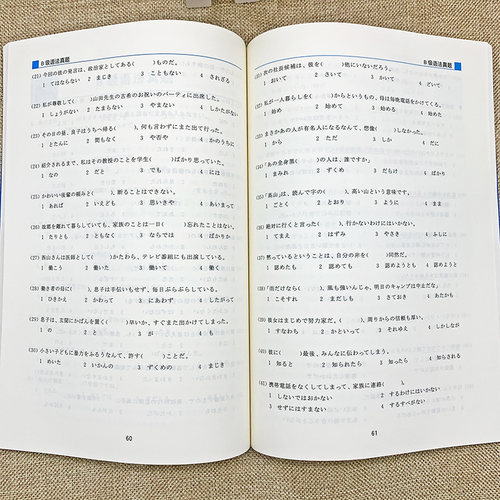 B 级语法真题
(21) 今回の彼の発言は、政治家としてある(　　)ものだ。
1 てはならない　2 まじき　3 こともない　4 されざる
(22) 私が尊敬して(　　)山田先生の古希のお祝いのパーティに出席した。
1 しょうがない　2 たまらない　3 やまない　4 しかたがない
(23) そのネの昼、良子はうちへ帰る(　　)、何も言わずにまた出て行った。
1 とたんに　2 間もなく　3 や否や　4 かのうちに
(24) 紹介されるまで、私はその教授のことを学生(　　)ばかり思っていた。
1 なの　2 だと　3 でも　4 には
(25) かわいい後輩の頼みと(　　)、断ることはできない。
1 あれば　2 いえども　3 思いきや　4 あいまって
(26) 故郷を離れて暮らしていても、家族のことは一日(　　)忘れたことはない。
1 たりとも　2 ともなく　3 ならでは　4 ばかりか
(27) 西山さんは医師として(　　)かたわら、テレビ番組にも出演している。
1 働こう　2 働いた　3 働いて　4 働く
(28) 働き者の母に(　　)、息子は手伝いもせず、毎日ぶらぶらしている。
1 ひきかえ　2 かわって　3 にあわず　4 したがって
(29) 息子は、玄関にかばんを置く(　　)早いか、すぐまた出かけてしまった。
1 の　2 と　3 が　4 か
(30) 小さい子どもに暴力をふるうなんて、許す(　　)ことだ。
1 めいた　2 いかんの　3 ずくめの　4 まじき
60
B 级语法真题
(31) 次の社長候補は、彼を(　　)他にいないだろう。
1 おいて　2 さいて　3 かいて　4 どいて
(32) 私が一人暮らしを(　　)からというもの、母は毎晩電話をかけてくる。
1 始め　2 始めて　3 始める　4 始めた
(33) まさかあの人が有名人になるなんて、想像(　　)しなかった。
1 から　2 ただ　3 しか　4 だに
(34) 「あの全身黒(　　)の人は、誰ですか」
1 まみれ　2 ずくめ　3 だらけ　4 ばかり
(35) 「高山」は、読んで字の(　　)、高い山という意味です。
1 ごとく　2 とおり　3 ように　4 まま
(36) 絶対に行くと言った(　　)、行かないわけにはいかない。
1 てまえ　2 はずみ　3 やさき　4 ふしに
(37) 黙っているということは、自分の非を(　　)同然だ。
1 認めたも　2 認めても　3 認めようとも　4 認めようと
(38) 「雨だけなら(　　)、風も強いんじゃ、明日のキャンプは中止だな」
1 こそすれ　2 まだしも　3 さておき　4 あたかも
(39) 彼女はまじめで努力家だ。(　　)、周りからの信頼も厚い。
1 すなわち　2 かといって　3 それゆえ　4 しかしながら
(40) 彼に(　　)最後、みんなに伝わってしまう。
1 知ると　2 知られたら　3 知ったら　4 知られる
(41) 携帯電話をなくしてしまって、家族に連絡(　　)。
1 しないではおかない　2 するわけにはいかない
3 せずにはすまない　4 するすべがない
61